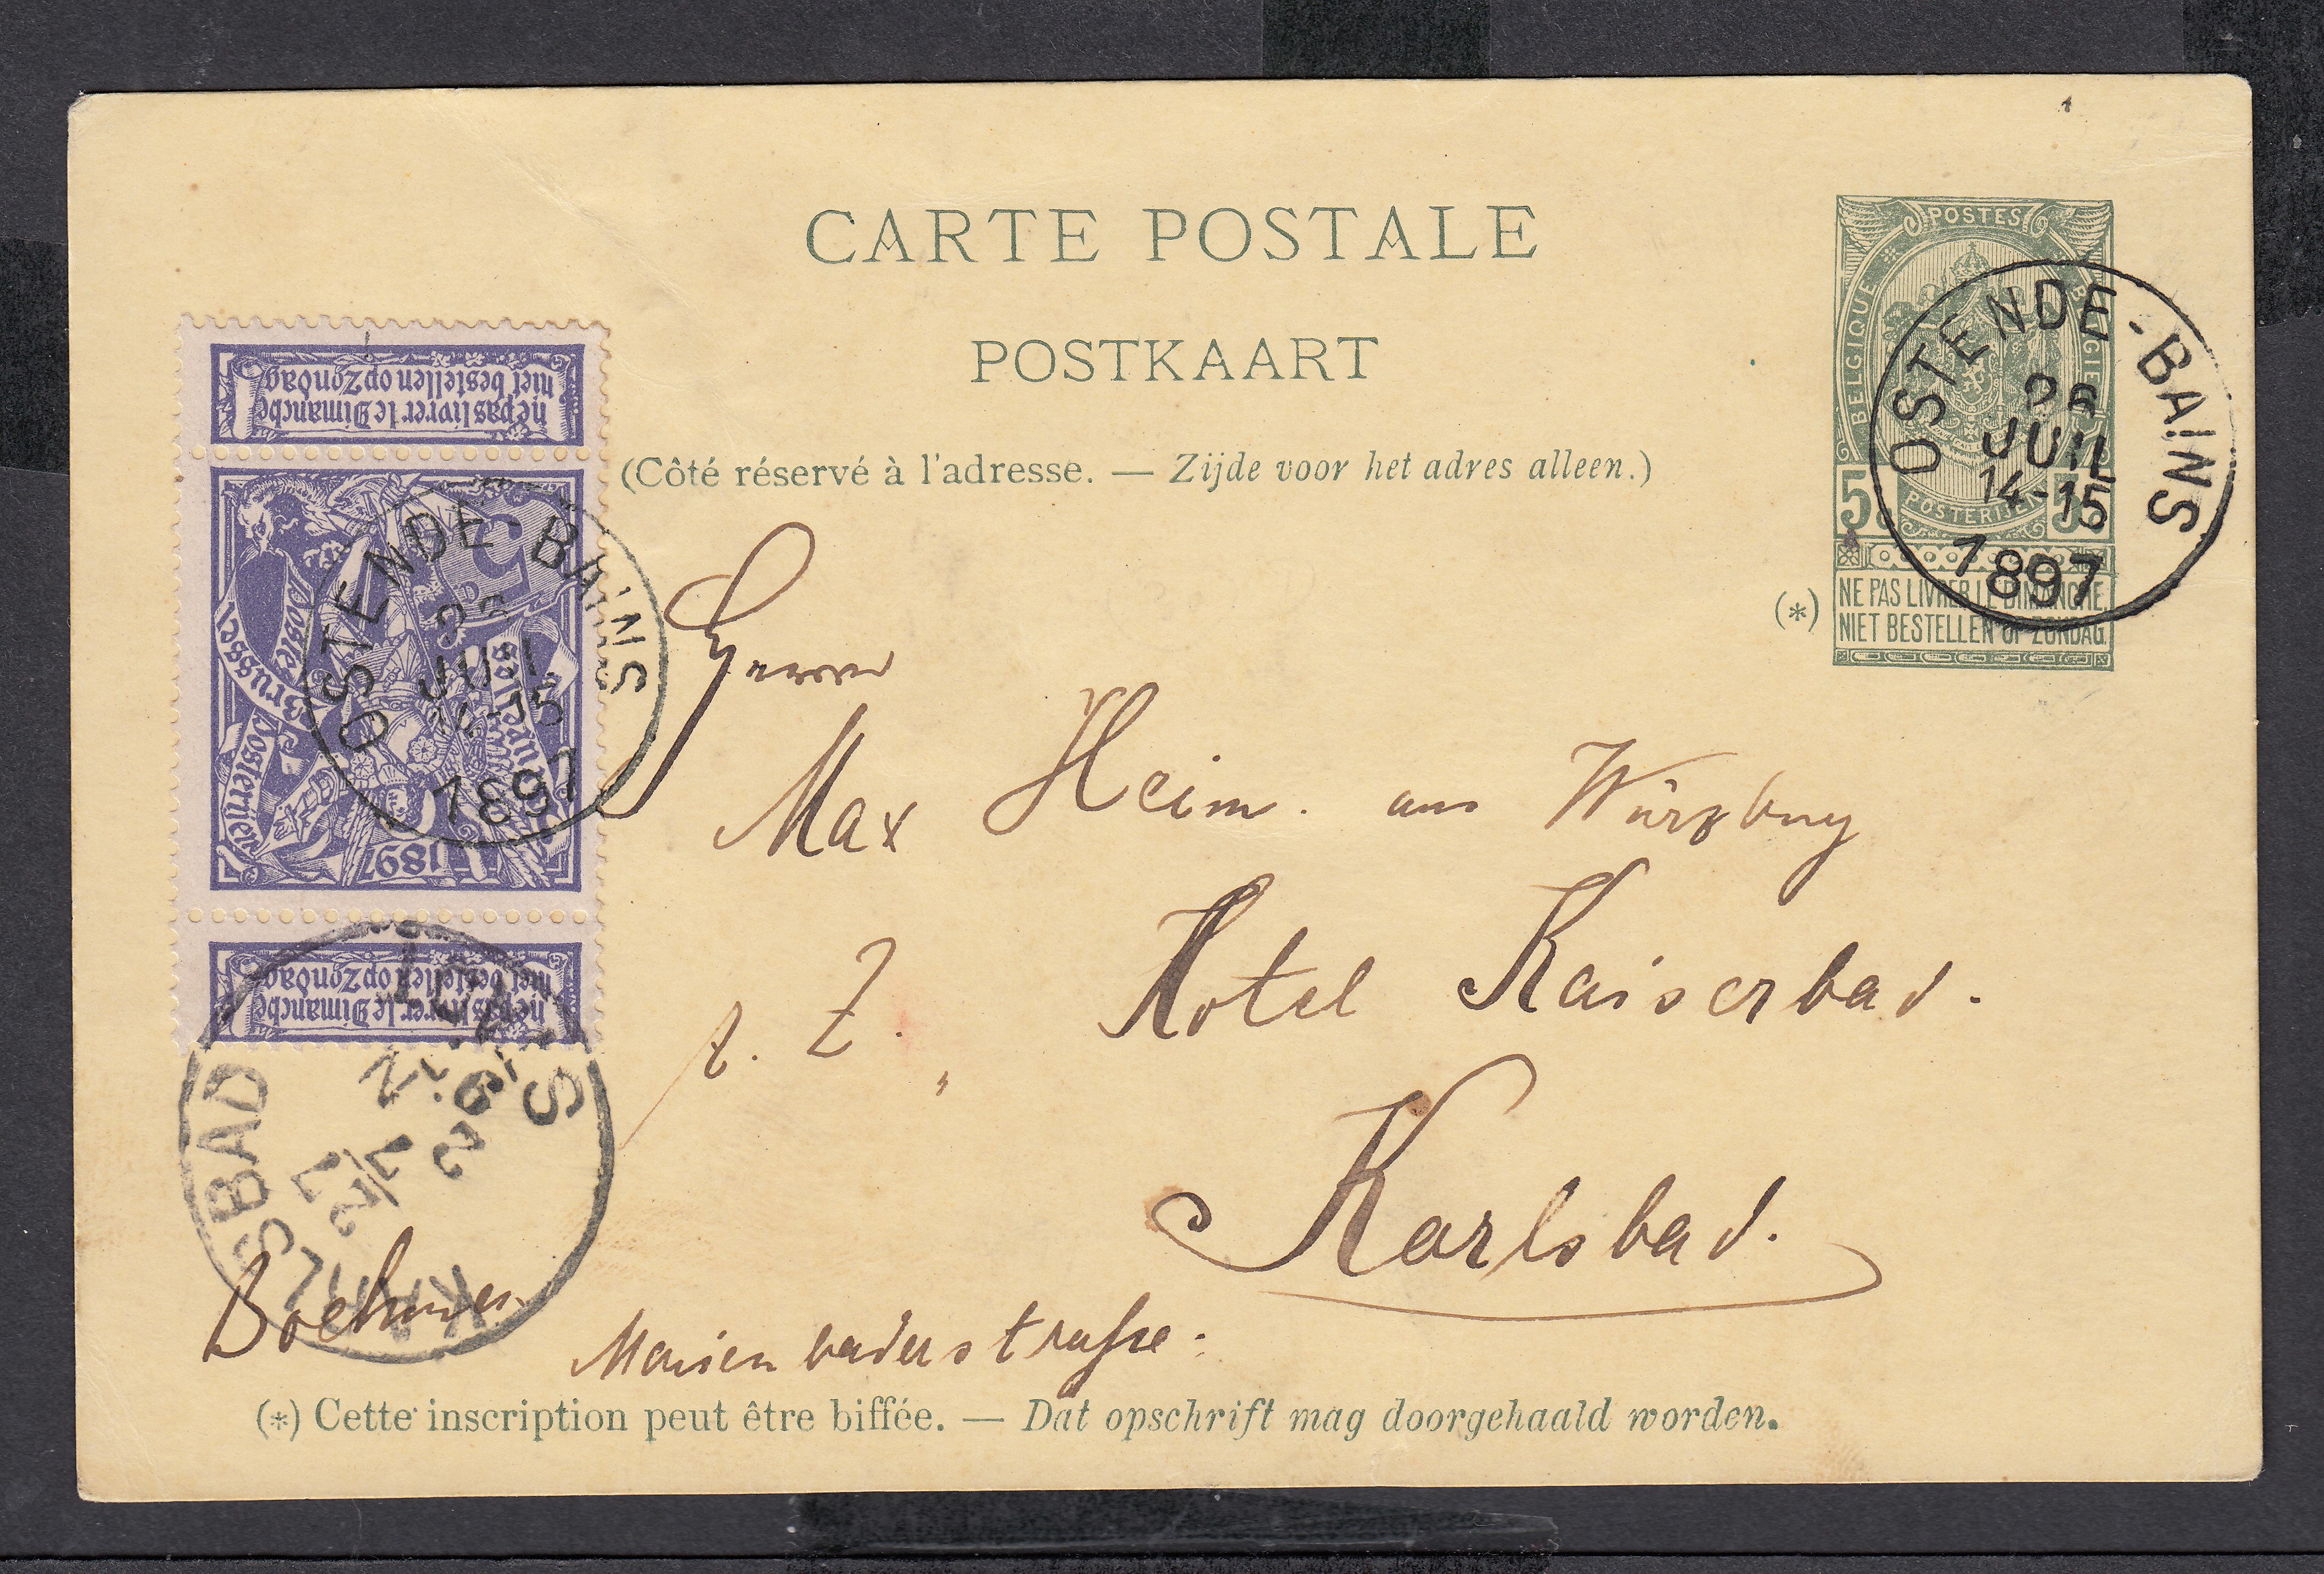 CARTE POSTALE
POSTKAART
(Côté réservé à l'adresse. — Zijde voor het adres alleen.)
POSTES
BELGIQUE BELGIE
5 5
POSTERIJEN
(*) NE PAS LIVRER LE DIMANCHE.
NIET BESTELLEN OP ZONDAG.
OSTENDE-BAINS
26
JUIL
14-15
1897
ne pas livrer le Dimanche
niet bestellen op Zondag
5
Postes Bruxelles
Brussel Posterijen
1897
OSTENDE-BAINS
JUIL
14-15
1897
ne pas livrer le Dimanche
niet bestellen op Zondag
KARLSBAD
Herrn
Max Heim. aus Würzburg
z. Z. Hotel Kaiserbad.
Karlsbad.
Boehmen
Marienbaderstraße.
(*) Cette inscription peut être biffée. — Dat opschrift mag doorgehaald worden.